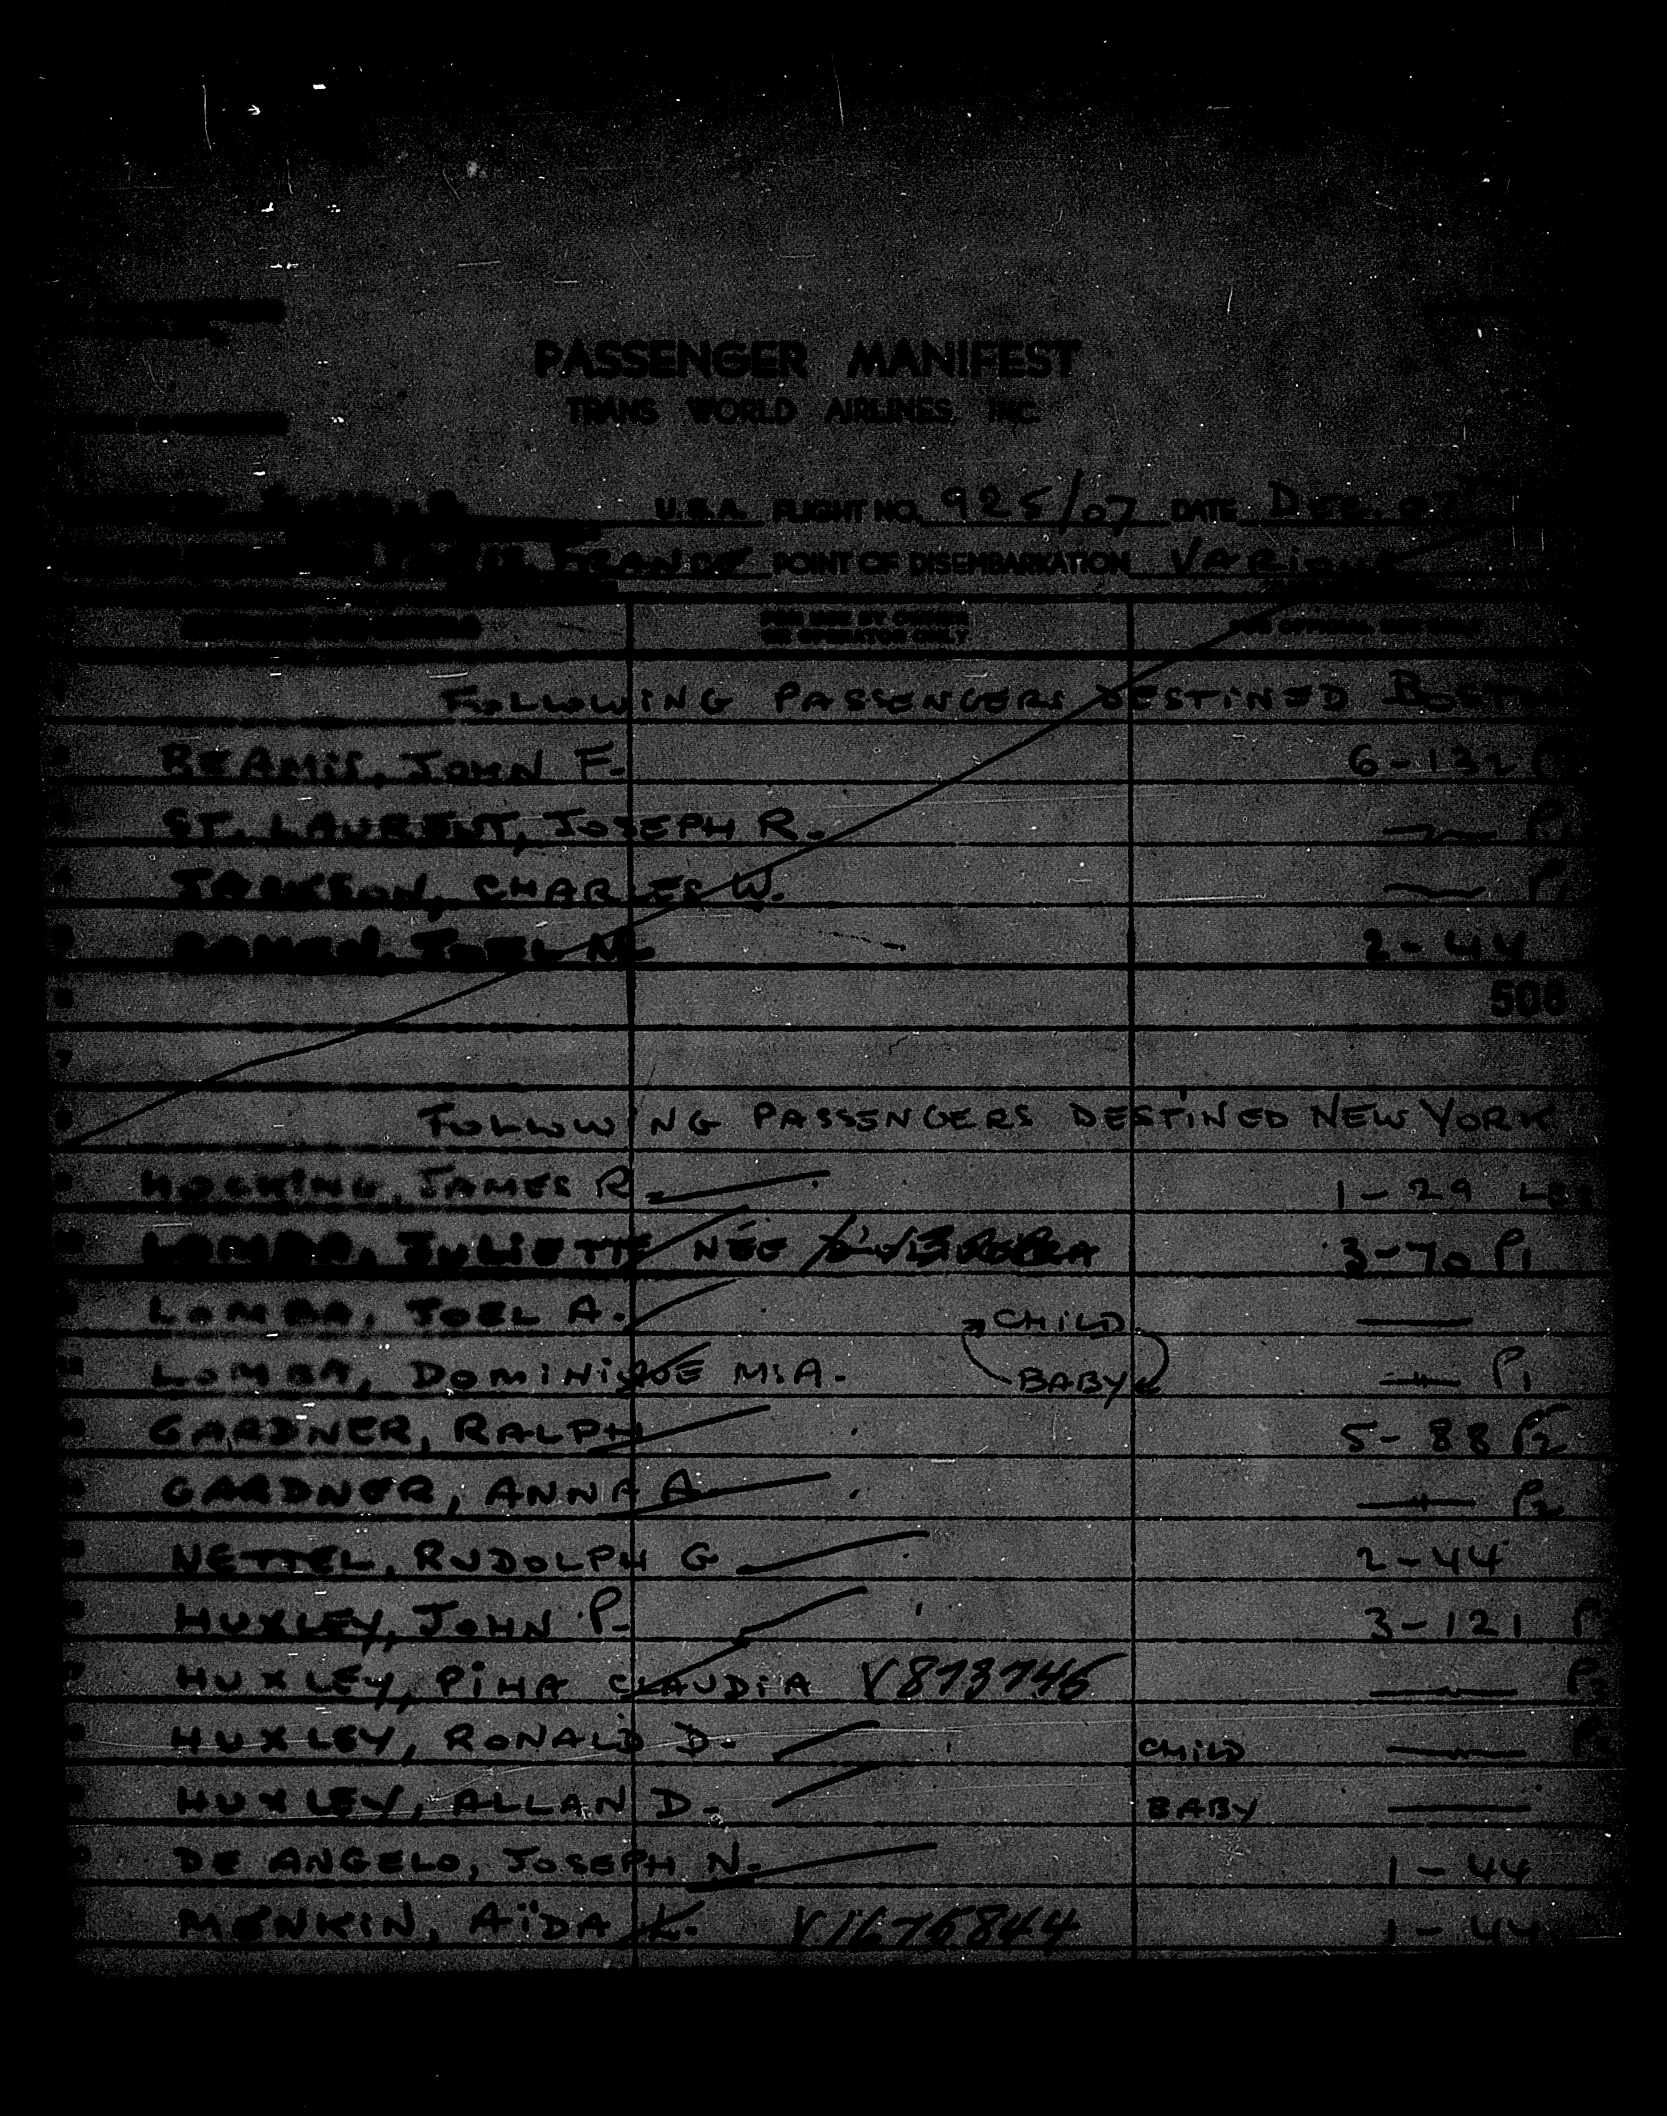 PASSENGER MANIFEST
TRANS WORLD AIRLINES, INC.
U.S.A. FLIGHT NO. 925/07 DATE DEC. 07
FRANCE POINT OF DISEMBARKATION VARIOUS
FOR USE BY OWNER
OR OPERATOR ONLY
FOR OFFICIAL USE ONLY
FOLLOWING PASSENGERS DESTINED BOSTON
BEAMIS, JOHN F. 6-132
ST. LAURENT, JOSEPH R. P1
JACKSON, CHARLES W. P1
JOEL M. 2-44
506
7
FOLLOWING PASSENGERS DESTINED NEW YORK
HOCKING, JAMES R. 1-29
LOMBA, JULIETTE NÉE 3-70 P1
LOMBA, JOEL A. CHILD
LOMBA, DOMINIQUE MIA. BABY P1
GARDNER, RALPH 5-88 P2
GARDNER, ANNA A. P2
NETTEL, RUDOLPH G 2-44
HUXLEY, JOHN P. 3-121 P
HUXLEY, PIHA CLAUDIA V873745 P2
HUXLEY, RONALD D. CHILD
HUXLEY, ALLAN D. BABY
DE ANGELO, JOSEPH N. 1-44
MENKIN, AÏDA K. V1675844 1-44